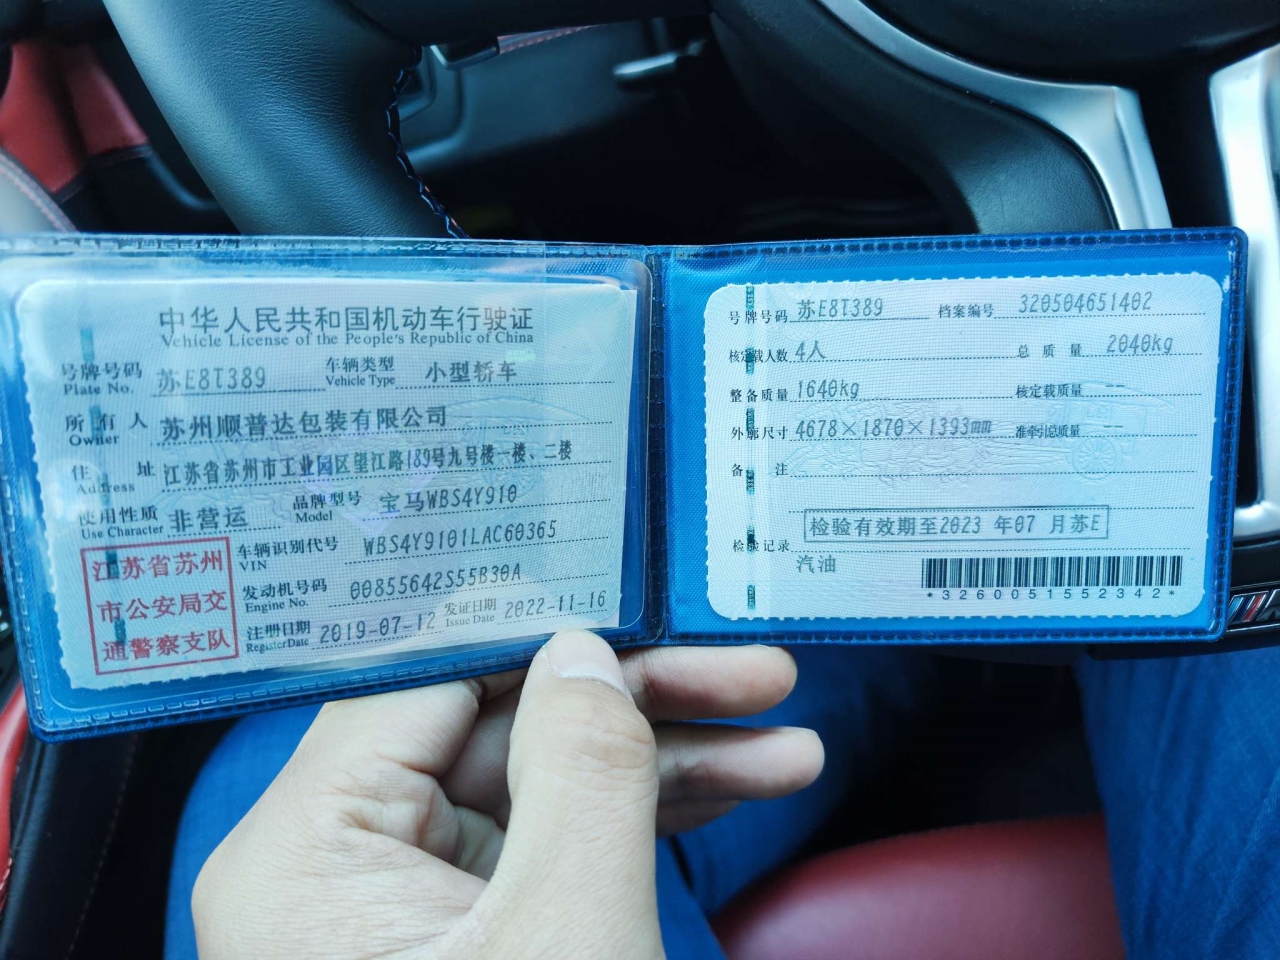 中华人民共和国机动车行驶证
Vehicle License of the People's Republic of China
号牌号码 苏E8T389 车辆类型 小型轿车
Plate No. Vehicle Type
所有人 苏州顺普达包装有限公司
Owner
住址 江苏省苏州市工业园区望江路189号九号楼一楼、二楼
Address
使用性质 非营运 品牌型号 宝马WBS4Y910
Use Character Model
江苏省苏州
市公安局交
通警察支队
车辆识别代号 WBS4Y9101LAC60365
VIN
发动机号码 00855642S55B30A
Engine No.
注册日期 2019-07-12 发证日期 2022-11-16
Register Date Issue Date
号牌号码 苏E8T389 档案编号 320504651402
核定载人数 4人 总质量 2040kg
整备质量 1640kg 核定载质量 --
外廓尺寸 4678×1870×1393mm 准牵引总质量 --
备注
检验有效期至2023 年07 月苏E
检验记录
汽油
*3260051552342*